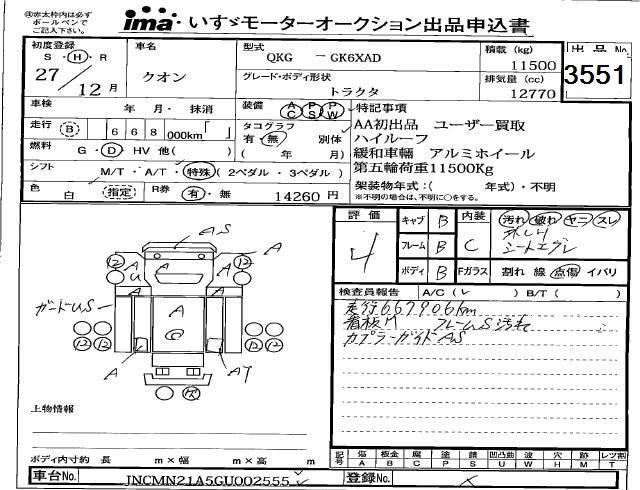 ㊟赤太枠内は必ず
ボールペンで
ご記入下さい。
ima いすゞモーターオークション出品申込書
初度登録
S・H・R
27/12月
車名
クオン
型式
QKG - GK6XAD
グレード・ボディ形状
トラクタ
積載 (kg)
11500
排気量 (cc)
12770
出品No.
3551
車検 年 月・ 抹消
装備 AC PS PW
特記事項
走行 B 668 000km
タコグラフ
有・無 別体
( 年 月)
AA初出品 ユーザー買取
ハイルーフ
緩和車輛 アルミホイール
第五輪荷重11500Kg
燃料 G・D HV 他( )
シフト M/T・A/T・特殊 (2ペダル・3ペダル)
架装物年式:( 年式)・不明
※不明の場合は、不明に○をする。
色 白 指定
R券 有・無 14260円
評価 4
キャブ B
フレーム B
ボディ B
内装 C
汚れ 破れ ヤニ スレ
シートエグレ
Fガラス 割れ 線 点傷 イバリ
検査員報告 A/C( レ ) B/T( )
走行667906km
看板M フレームUS汚れ
カプラーガイドAS
AS
A
A
12
12
A
A
U
ガードUS
A
A
12
12
12
12
A
A7
上物情報
ボディ内寸約 長 m×幅 m×高 m
記号 傷A 板金B 腐C 塗P 錆S 凹凸曲U 波W 穴H 跡M レツ割T
車台No. JNCMN21A5GU002555
登録No.